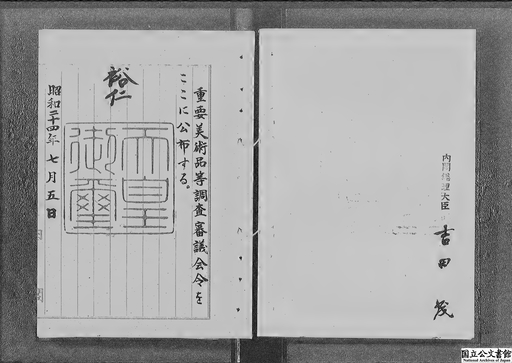 重要美術品等調査審議会令を
ここに公布する。
裕仁
天皇
御璽
昭和二十四年七月五日
内閣総理大臣
吉田茂
国立公文書館
National Archives of Japan